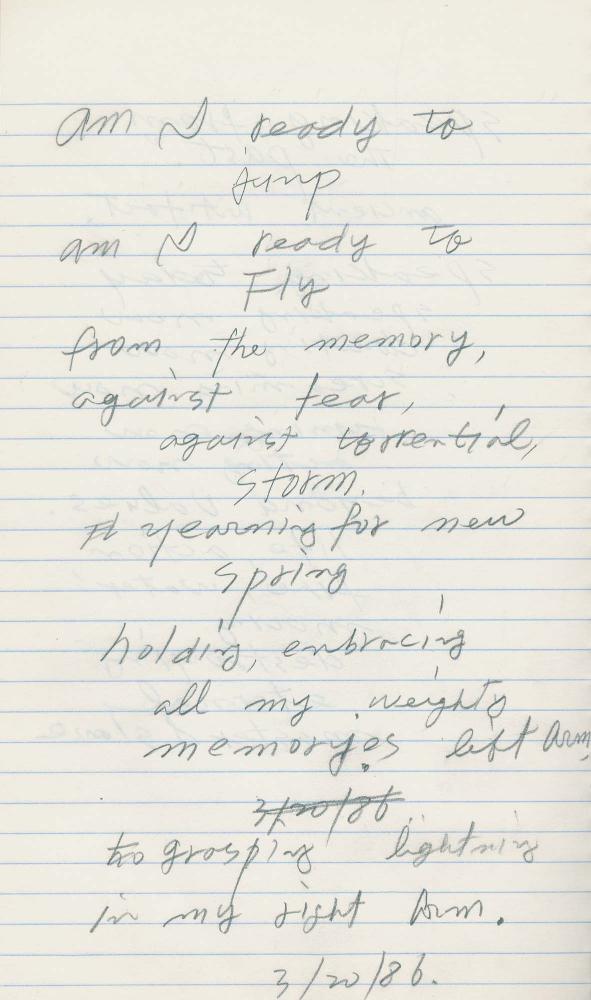 am I ready to
jump
am I ready to
Fly
from the memory,
against fear,
against torrential,
storm.
yearning for new
spring
holding, embracing
all my weighty
memories left Arm,
3/20/86
to grasping lightning
in my right Arm.
3/20/86.